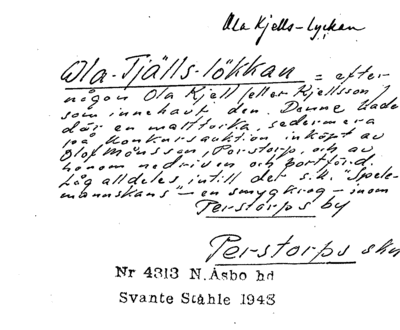 Ola Kjells-Lyckan
Ola-Tjälls-lökkan = efter
någon Ola Kjell (eller Kjellsson)
som innehavt den. Denne hade
där en malttorka, sedermera
på konkursauktion inköpt av
Olof Månsson, Perstorp, och av
honom nedriven och bortförd.
Låg alldeles intill det s.k. "Spele-
mannskans" – en smygkrog – inom
Perstorps by
Perstorps skn
Nr 4313 N.Åsbo hd
Svante Ståhle 1948